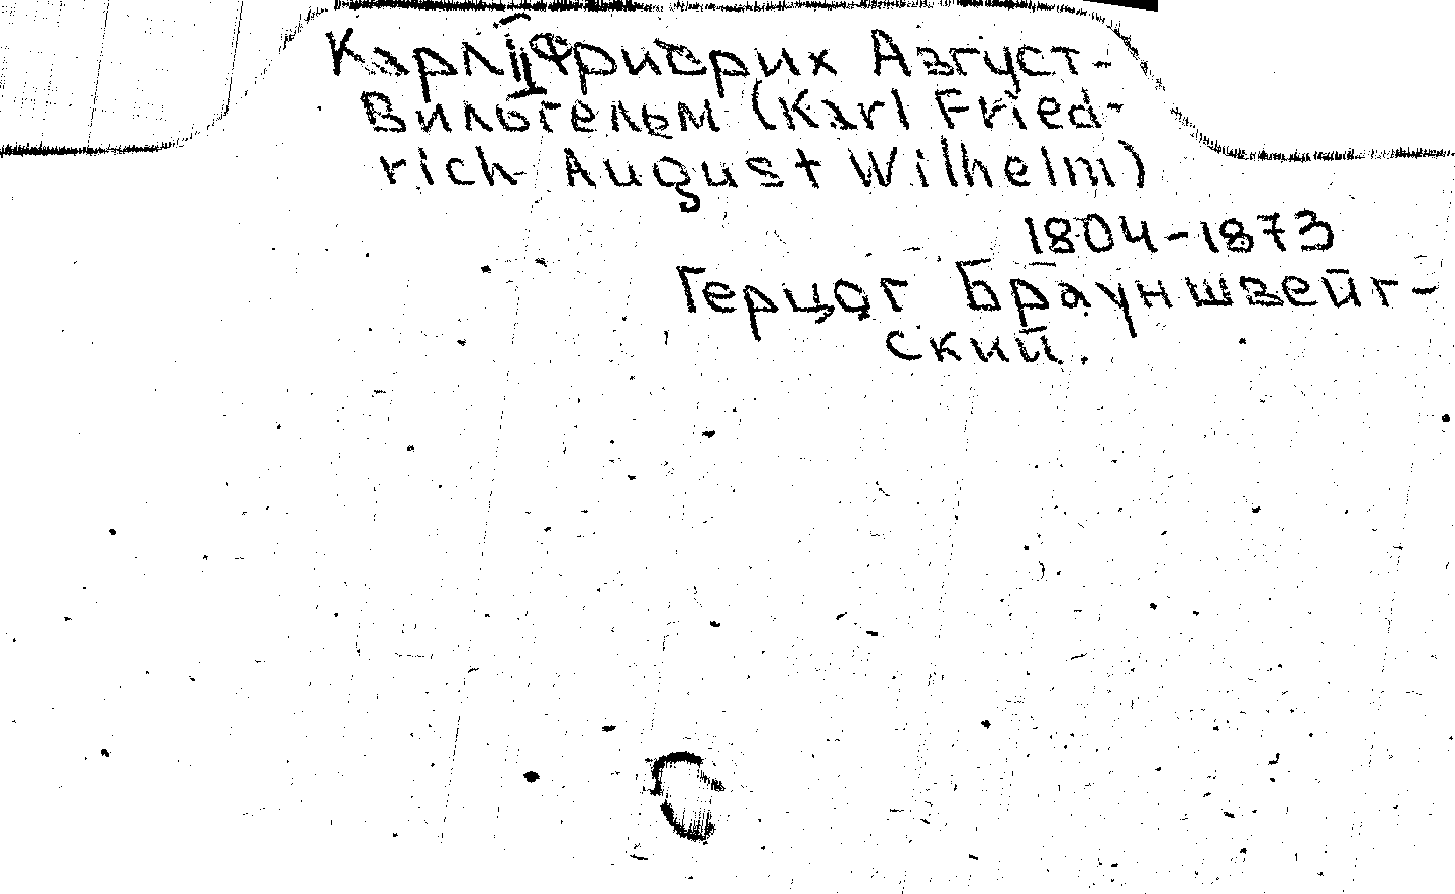 Карл II Фридрих Август-
Вильгельм (Karl Fried-
rich August Wilhelm)
1804-1873
Герцог Брауншвейг-
ский.